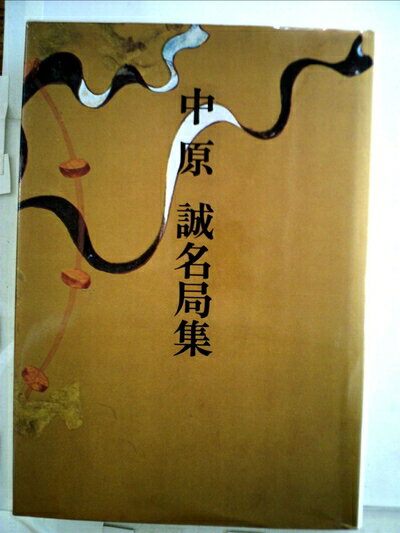 中原 誠名局集